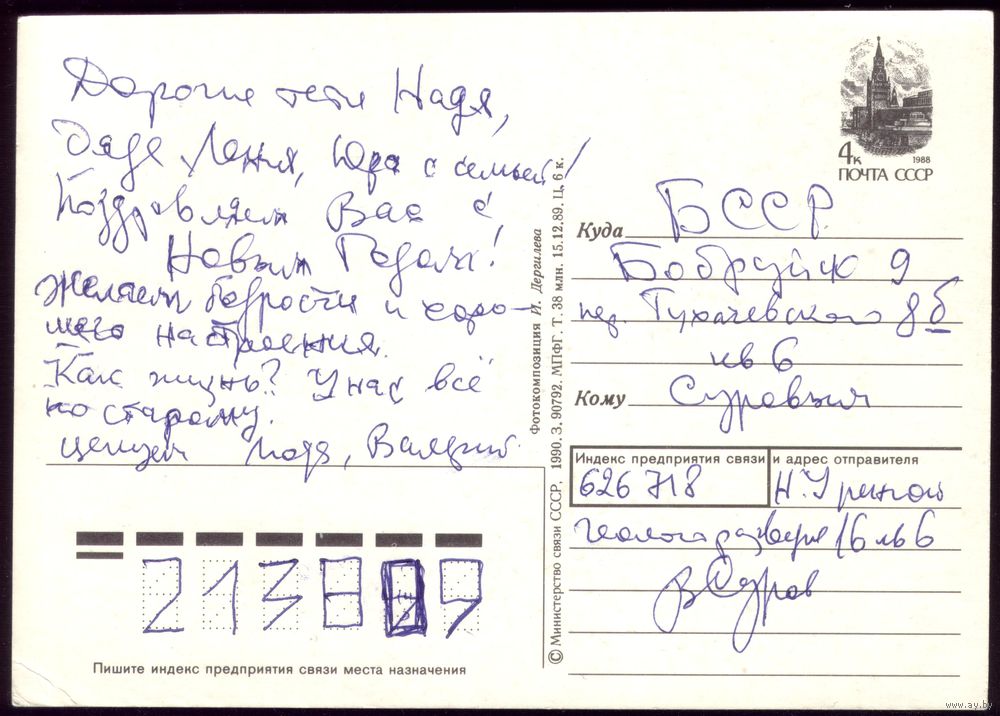 Дорогие тетя Надя,
дядя Лёня, Юра с семьей!
Поздравляем Вас с
Новым Годом!
Желаем бодрости и хоро-
шего настроения.
Как жизнь? У нас всё
по старому.
Целуем Люда, Валерий.
4к 1988
ПОЧТА СССР
БССР
Куда
Бобруйск 9
пер. Тухачевского 8б
кв 6
Кому Суровым
Индекс предприятия связи и адрес отправителя
626718 Н. Уренгой
Геологоразведчиков 16 кв 6
В Суров
213809
Пишите индекс предприятия связи места назначения
Фотокомпозиция И. Дергилева
© Министерство связи СССР, 1990. З. 90792. МПФГ. Т. 38 млн. 15.12.89. Ц. 6 к.
www.ay.by